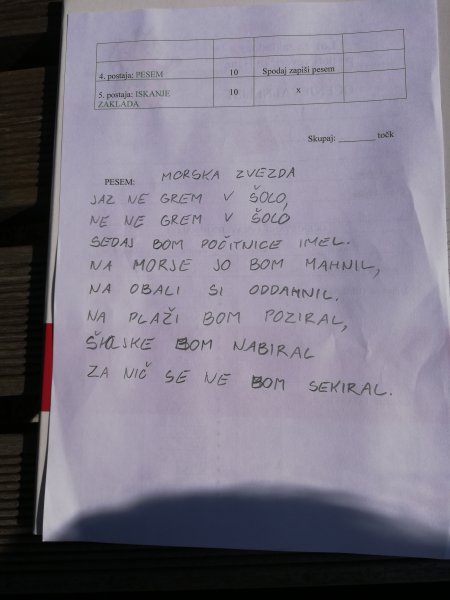 4. postaja: PESEM 10 Spodaj zapiši pesem
5. postaja: ISKANJE ZAKLADA 10 x
Skupaj: ________ točk
PESEM: MORSKA ZVEZDA
JAZ NE GREM V ŠOLO,
NE NE GREM V ŠOLO
SEDAJ BOM POČITNICE IMEL.
NA MORJE JO BOM MAHNIL,
NA OBALI SI ODDAHNIL.
NA PLAŽI BOM POZIRAL,
ŠKOLJKE BOM NABIRAL
ZA NIČ SE NE BOM SEKIRAL.